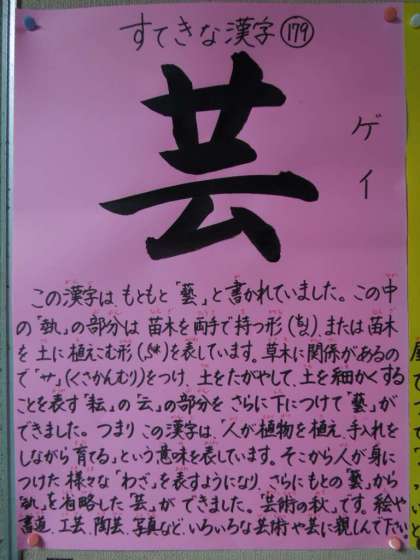 すてきな漢字 179
芸
ゲイ
この漢字は、もともと「藝」と書かれていました。この中
の「埶」の部分は 苗木を両手で持つ形()、または苗木
を 土に植えこむ形()を表しています。草木に関係があるの
で「サ」(くさかんむり)をつけ、土をたがやして、土を細かくする
ことを表す「耘」の「云」の部分を さらに下につけて「藝」が
できました。つまり この漢字は、「人が植物を植え、手入れを
しながら 育てる」という意味を表しています。そこから人が身に
つけた様々な「わざ」を表すようになり、さらにもとの「藝」から
「埶」を省略した「芸」が できました。「芸術の秋」です。絵や
書道、工芸、陶芸、写真など、いろいろな芸術や芸に親しんで下さい